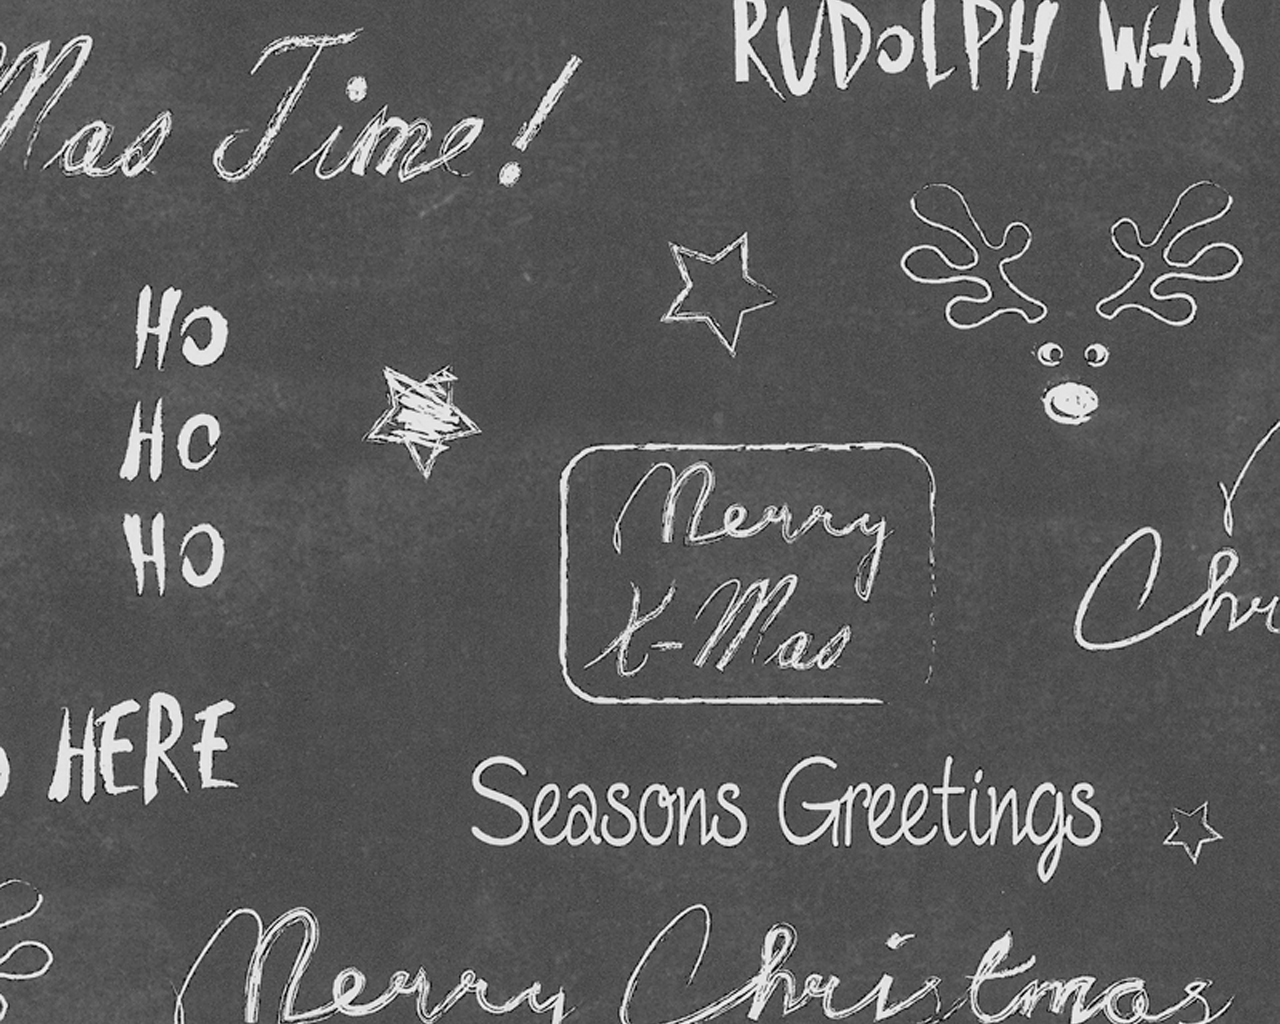 Mas Time!
RUDOLPH WAS
HO
HO
HO
Merry
X-Mas
Chr
HERE
Seasons Greetings
Merry Christmas